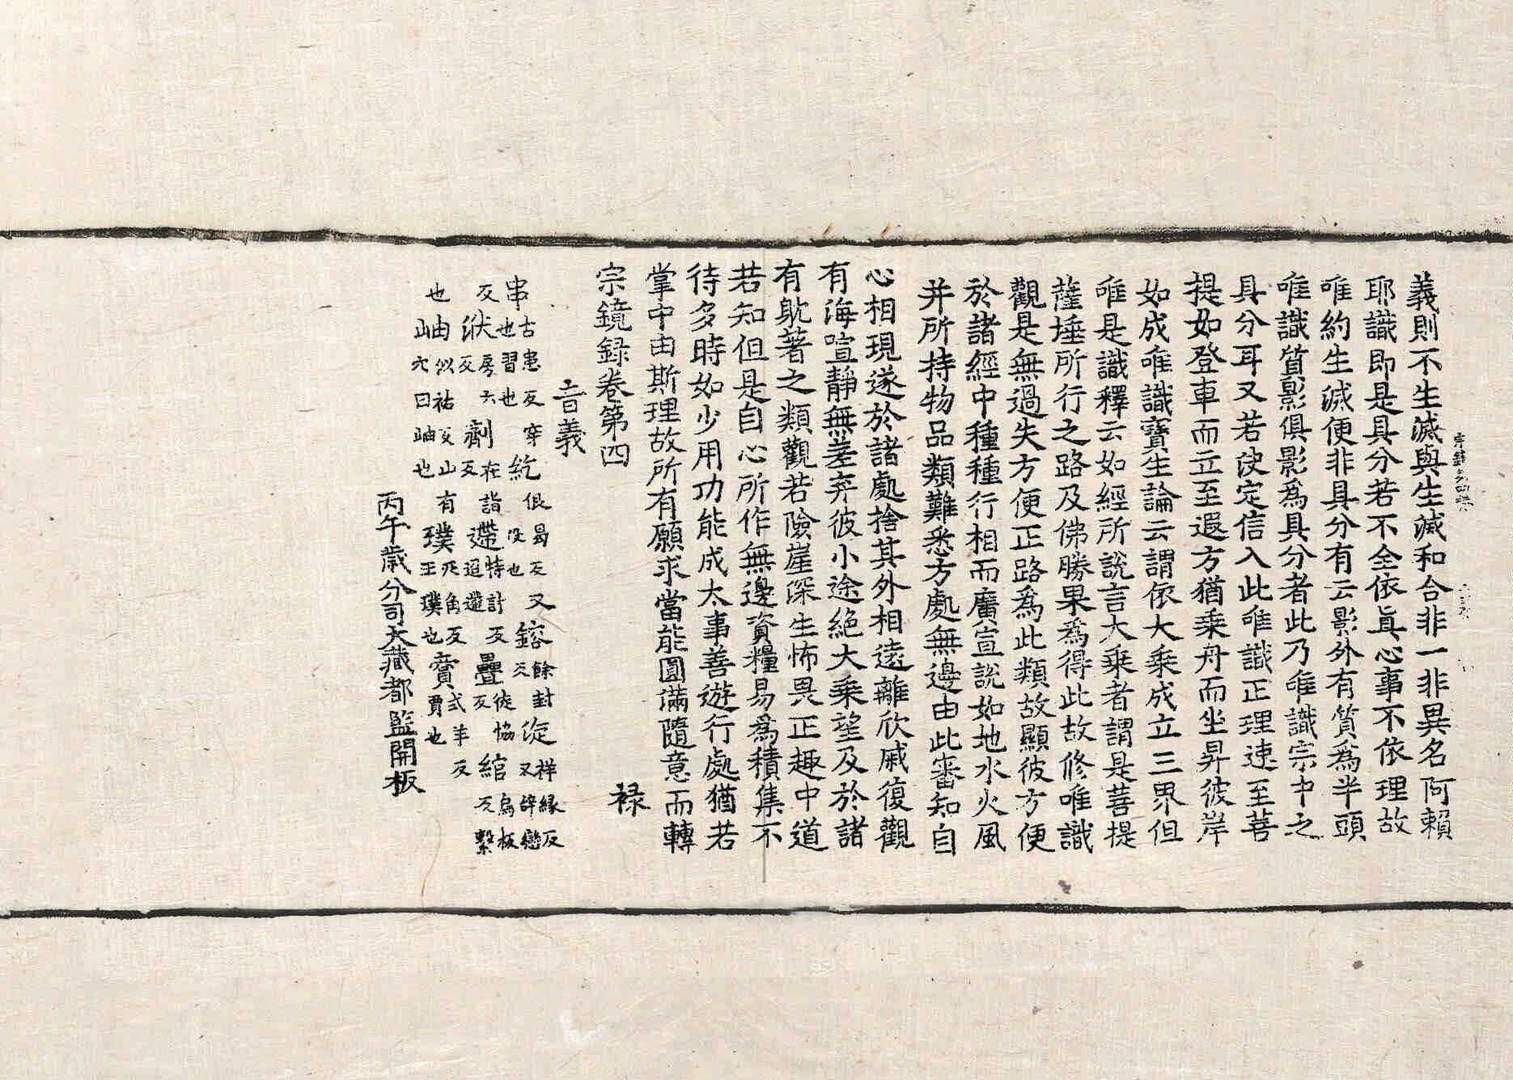 義則不生滅與生滅和合非一非異名阿賴
耶識即是具分若不全依眞心事不依理故
唯約生滅便非具分有云影外有質爲半頭
唯識質影俱影爲具分者此乃唯識宗中之
具分耳又若決定信入此唯識正理速至菩
提如登車而立至遐方猶乘舟而坐昇彼岸
如成唯識寶生論云謂依大乘成立三界但
唯是識釋云如經所說言大乘者謂是菩提
薩埵所行之路及佛勝果爲得此故修唯識
觀是無過失方便正路爲此類故顯彼方便
於諸經中種種行相而廣宣說如地水火風
并所持物品類難悉方處無邊由此審知自
心相現遂於諸處捨其外相遠離欣戚復觀
有海喧靜無差弃彼小途絶大乘望及於諸
有躭著之類觀若險崖深生怖畏正趣中道
若知但是自心所作無邊資糧易爲積集不
待多時如少用功能成大事善遊行處猶若
掌中由斯理故所有願求當能圓滿隨意而轉
宗鏡録卷第四 禄
音義
串古患反穿也習也 紇恨曷反又没也 鎔餘封反 淀祥縁反又辝戀反
洑房六反 劑在詣反 遰特計反迢遰 疊徒恊反 綰烏板反繫也
岫似祐反山有穴曰岫也 璞疋角反玉璞也 賣式羊反賈也
丙午歳分司大藏都監開板